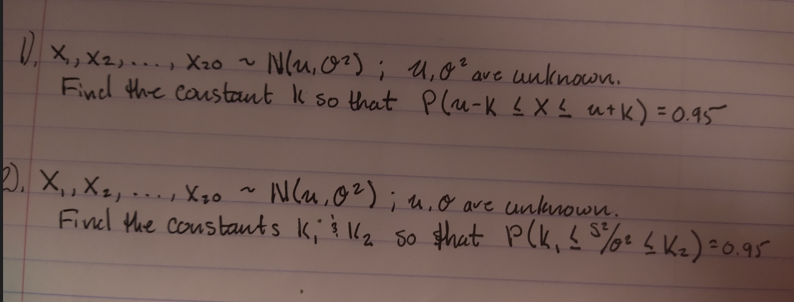 1). X₁, X₂, ..., X₂₀ ~ N(u, σ²) ; u, σ² are unknown.
Find the constant k so that P(u-k ≤ X ≤ u+k) = 0.95
2). X₁, X₂, ..., X₂₀ ~ N(u, σ²) ; u, σ are unknown.
Find the constants K₁ & K₂ so that P(K₁ ≤ S²/σ² ≤ K₂) = 0.95